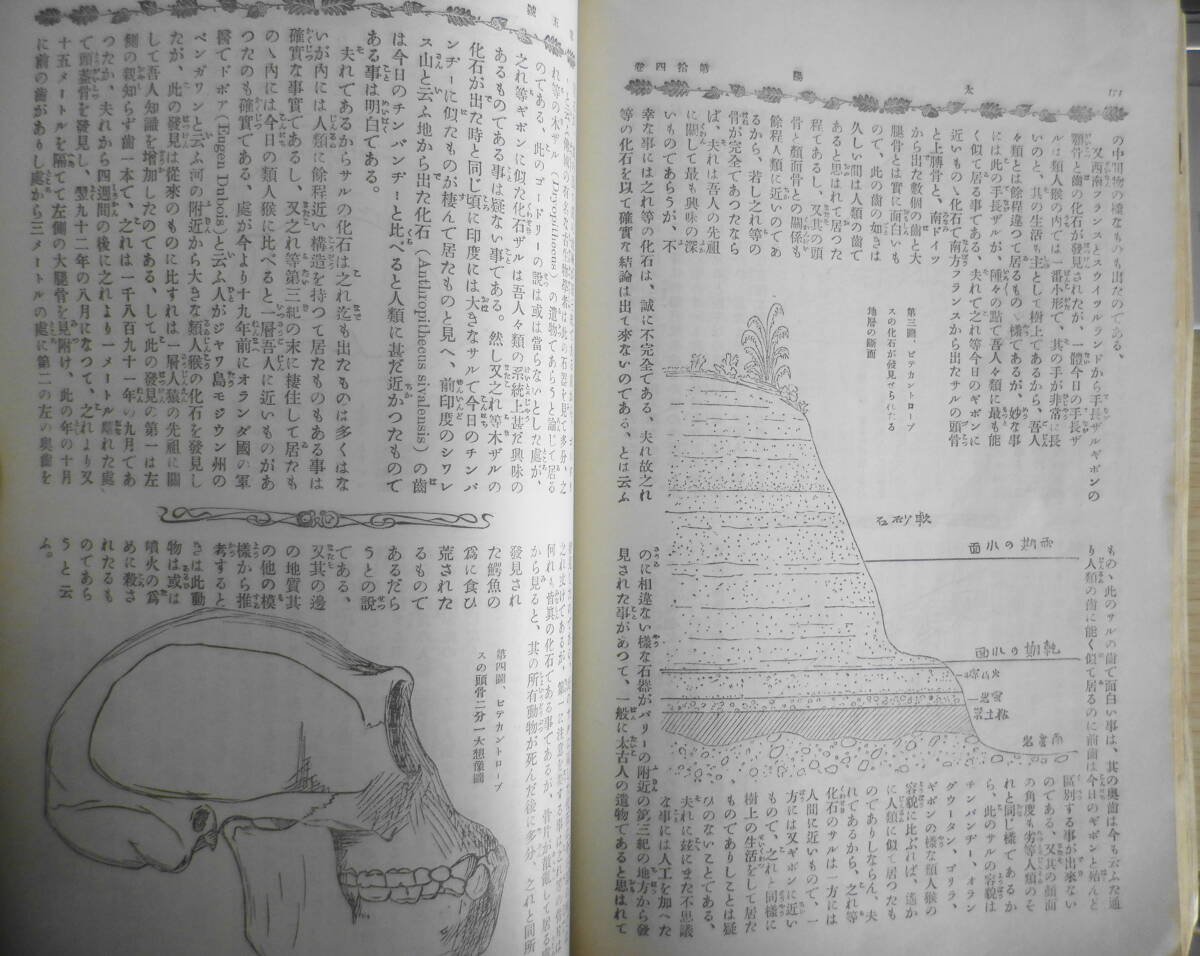 太
陽
第拾四卷
の中間物の樣なものも出たのである、
又西南フランスとスウイツルランドから手長ザルギボンの
顎骨と齒の化石が發見されたが、一體今日の手長ザ
ルは類人猴の内では一番小形で、其の手が非常に長
いのと、其の生活も主として樹上であるから、吾人
々類とは餘程違つて居るものゝ樣であるが、妙な事
には此の手長ザルが、種々の點で吾人々類に最も能
く似て居る事である、夫れで之れ等今日のギボンに
近いものゝ化石で南方フランスから出たサルの頭骨
と上膊骨と、南ドイツ
から出た數個の齒と大
腿骨とは實に面白いも
ので、此の齒の如きは
久しい間は人類の齒で
あると思はれて居つた
程であるし、又其の頭
骨・顏面骨との關係も
餘程人類に近いのであ
るから、若し之れ等の
骨が完全であつたなら
ば、夫れは吾人の先祖
に關して最も興味の深
いものであらうが、不
幸な事には之れ等の化石は、誠に不完全である、夫れ故之れ
等の化石を以て確實な結論は出て來ないのである、とは云ふ
第三圖、ピテカントロープ
スの化石が發見せられたる
地層の斷面
軟砂石
雨期の水面
乾期の水面
火山
蠻岩
粘土岩
ものゝ此のサルの齒で面白い事は、其の奧齒は今も云ふた通
り人類の齒に能く似て居るのに前齒は今日のギボンと殆んど
區別する事が出來ない
のである、又其の顏面
の角度も劣等人類のそ
れと同じ樣であるか
ら、此のサルの容貌は
チンパンヂー、オラン
グウータン、ゴリラ、
ギボンの樣な類人猴の
容貌に比ぶれば、遙か
に人類に似て居つたも
のでありしならん、夫
れであるから、之れ等
化石のサルは一方には
人間に近いもので、一
方には又ギボンに近い
もので、之れと同樣に
樹上の生活をして居た
ものでありしことは疑
ひのないことである、
夫れに玆にまた不思議
な事には人工を加へた
のに相違ない樣な石器がパリーの附近の第三紀の地方から發
見された事があつて、一般に太古人の遺物であると思はれて
れ等の木ザル(Dryopithecus)の遺物であらうと論じて居る
のである、此のゴードリーの說は或は當らないとした處が、
之れ等ギボンに似た化石ザルは吾人々類の系統上甚だ興味の
あるものである事は疑ない事である。然し又之れ等木ザルの
化石が出た時と同じ頃に印度には大きなサルで今日のチンパ
ンヂーに似たものが棲んで居たものと見へ、前印度のシワレ
ス山と云ふ地から出た化石(Anthropithecus sivalensis)の齒
は今日のチンパンヂーと比べると人類に甚だ近かつたもので
ある事は明白である。
夫れであるからサルの化石は之れ迄も出たものは多くはな
いが内には人類に餘程近い構造を持つて居たものもある事は
確實な事實であるし、又之れ等第三紀の末に棲住して居たも
のゝ内には今日の類人猴に比べると一層吾人に近いものがあ
つたのも確實である、處が今より十九年前にオランダ國の軍
醫でドボア(Eugen Dubois)と云ふ人がジヤワ島モジウン州の
ベンガワンと云ふ河の附近から大きな類人猴の化石を發見し
たが、此の發見は從來のものに比すれは一層人猿の先祖に關
して吾人知識を增加したのである、して此の發見の第一は左
側の親知らず齒一本で、之れは一千八百九十一年の九月であ
つたか、夫れから四週間の後に之れより一メートル離れた處
で頭蓋骨を發見し、翌九十二年の八月になつて、之れより又
十五メートルを隔てゝ左側の大腿骨を見附け、此の年の十月
に前の齒がありし處から三メートルの處に第二の左の奧齒を
何れも皆眞の化石である事であるが、
から見ると、其の所有動物が死んだ後に多分、之れと同所
發見され
た鰐魚の
爲に食ひ
荒された
るもので
あるだら
うとの說
である、
又其の邊
の地質其
の他の模
樣から推
考すると
きは此動
物は或は
噴火の爲
めに殺さ
れたるも
のであら
うと云
ふ。
第四圖、ピテカントロープ
スの頭骨二分一大想像圖